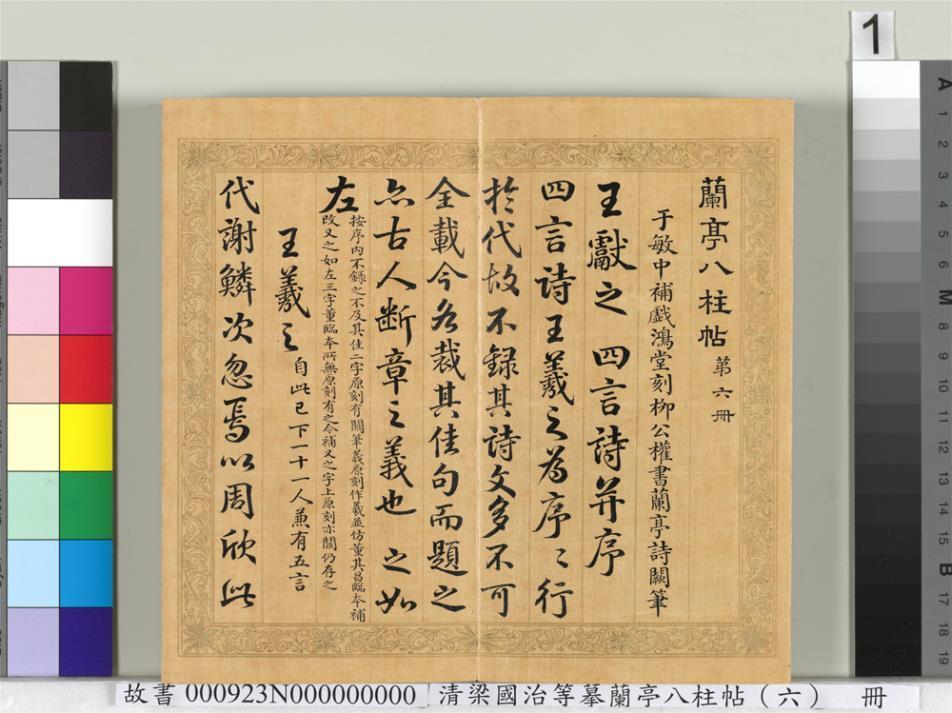 1
蘭亭八柱帖 第六冊
于敏中補戲鴻堂刻柳公權書蘭亭詩闕筆
王獻之 四言詩并序
四言詩王羲之為序序行
於代故不録其詩文多不可
全載今各裁其佳句而題之
亦古人断章之義也 之如
左 按序内不錄之不及其佳二字原刻有闕筆義原刻作羲並仿董其昌臨本補
改又之如左三字董臨本所無原刻有之今補又之字上原刻亦闕仍存之
王羲之 自此已下一十一人兼有五言
代謝鱗次忽焉以周欣此
故書 000923N000000000 清梁國治等摹蘭亭八柱帖（六） 冊
A 1 2 3 4 5 6 M 8 9 10 11 12 13 14 15 B 17 18 19